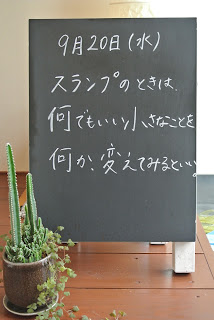 9月20日(水)
スランプのときは、
何でもいい小さなことを
何か、変えてみるといい。